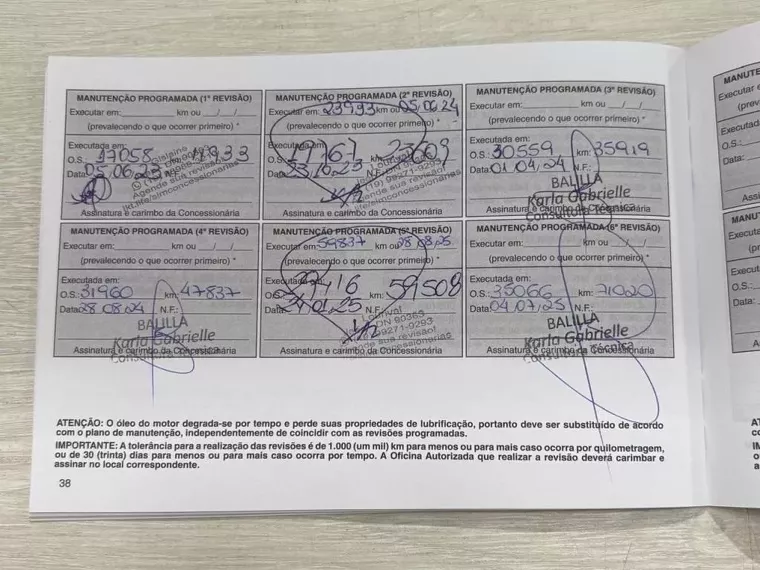 MANUTENÇÃO PROGRAMADA (1ª REVISÃO)
Executar em: km ou / /
(prevalecendo o que ocorrer primeiro) *
Executada em:
O.S.: 17058
Data: 05.06.23
Agende sua revisão!
Assinatura e carimbo da Concessionária
MANUTENÇÃO PROGRAMADA (2ª REVISÃO)
Executar em: 23993 km ou 05.06.24
(prevalecendo o que ocorrer primeiro) *
Executada em:
km: 23609
Data: 23.10.23
Lourival
(19) 99271-9293
Agende sua revisão!
Assinatura e carimbo da Concessionária
MANUTENÇÃO PROGRAMADA (3ª REVISÃO)
Executar em: km ou / /
(prevalecendo o que ocorrer primeiro) *
Executada em:
O.S.: 30559 km: 35919
Data: 01.04.24 N.F.:
BALILLA
Karla Gabrielle
Consultora Técnica
Assinatura e carimbo da Concessionária
MANUTENÇÃO PROGRAMADA (4ª REVISÃO)
Executar em: km ou / /
(prevalecendo o que ocorrer primeiro) *
Executada em:
O.S.: 31960 km: 47837
Data: 28.08.24 N.F.:
BALILLA
Karla Gabrielle
Consultora Técnica
Assinatura e carimbo da Concessionária
MANUTENÇÃO PROGRAMADA (5ª REVISÃO)
Executar em: 59837 km ou 28.08.25
(prevalecendo o que ocorrer primeiro) *
Executada em:
O.S.: km: 59508
Data: 24.01.25 N.F.:
Lourival
99271-9293
Agende sua revisão!
Assinatura e carimbo da Concessionária
MANUTENÇÃO PROGRAMADA (6ª REVISÃO)
Executar em: km ou / /
(prevalecendo o que ocorrer primeiro) *
Executada em:
O.S.: 35066 km: 71020
Data: 04.07.25 N.F.:
BALILLA
Karla Gabrielle
Consultora Técnica
Assinatura e carimbo da Concessionária
ATENÇÃO: O óleo do motor degrada-se por tempo e perde suas propriedades de lubrificação, portanto deve ser substituído de acordo
com o plano de manutenção, independentemente de coincidir com as revisões programadas.
IMPORTANTE: A tolerância para a realização das revisões é de 1.000 (um mil) km para menos ou para mais caso ocorra por quilometragem,
ou de 30 (trinta) dias para menos ou para mais caso ocorra por tempo. A Oficina Autorizada que realizar a revisão deverá carimbar e
assinar no local correspondente.
38